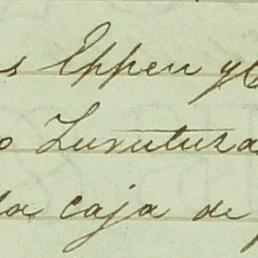 s Eppen y C
o Zurutuza
la caja de